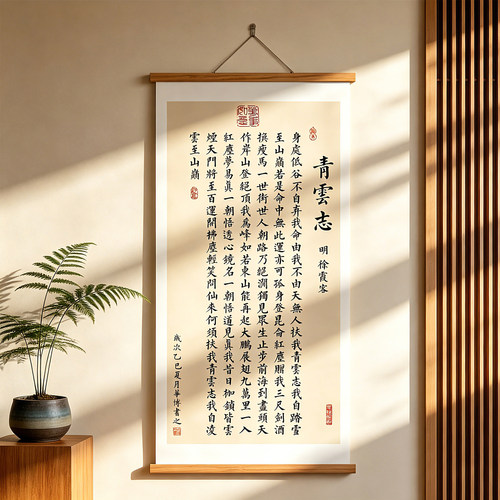 青雲志
明 徐霞客
身處低谷不自弃我命由我不由天無人扶我青雲志我自踏雪
至山巔若是命中無此運亦可孤身登昆侖紅塵贈我三尺劍酒
換瘦馬一世街世人朝路乃絕澗獨見眾生止步前海到盡頭天
作岸山登絕頂我為峰如若東山能再起大鵬展翅九萬里一入
紅塵夢易真一朝悟透心鏡名一朝悟道見真我昔日枷鎖皆雲
煙天門將至百運開拂塵輕笑問仙來何須扶我青雲志我自凌
雲至山巔
歲次乙巳夏月華博書之